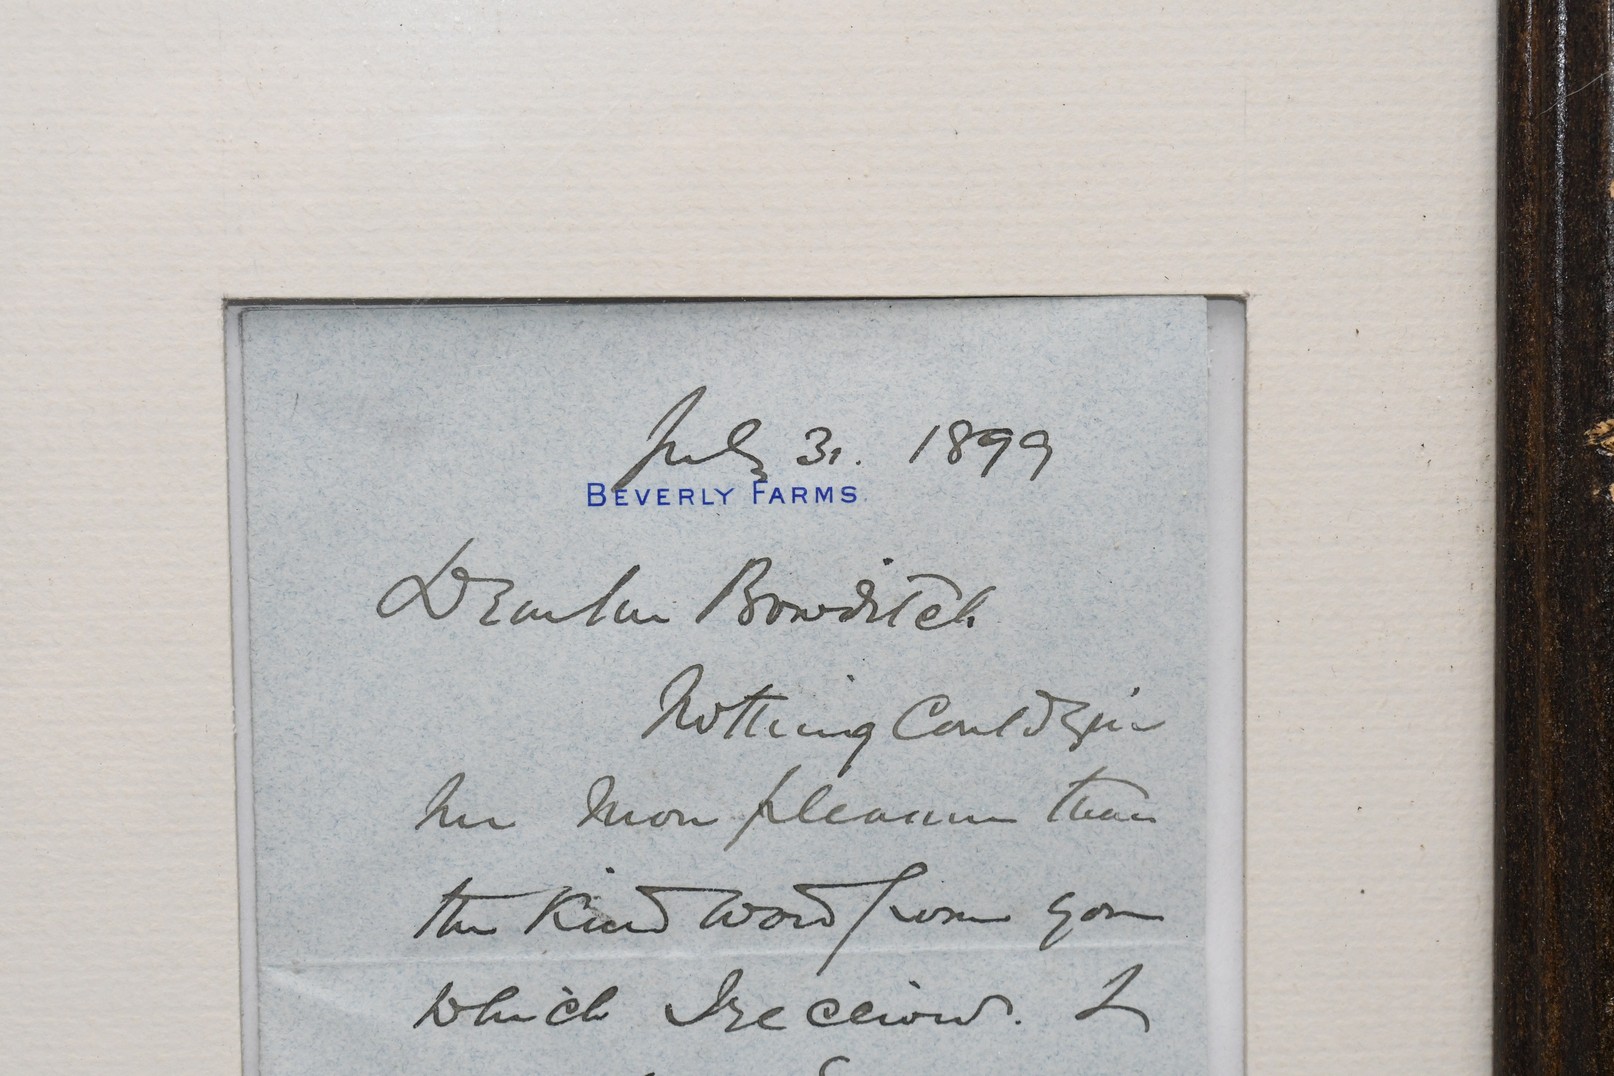 July 31. 1899
BEVERLY FARMS.
Dear Bowditch
Nothing could give
me more pleasure than
the kind word from you
which I received. I